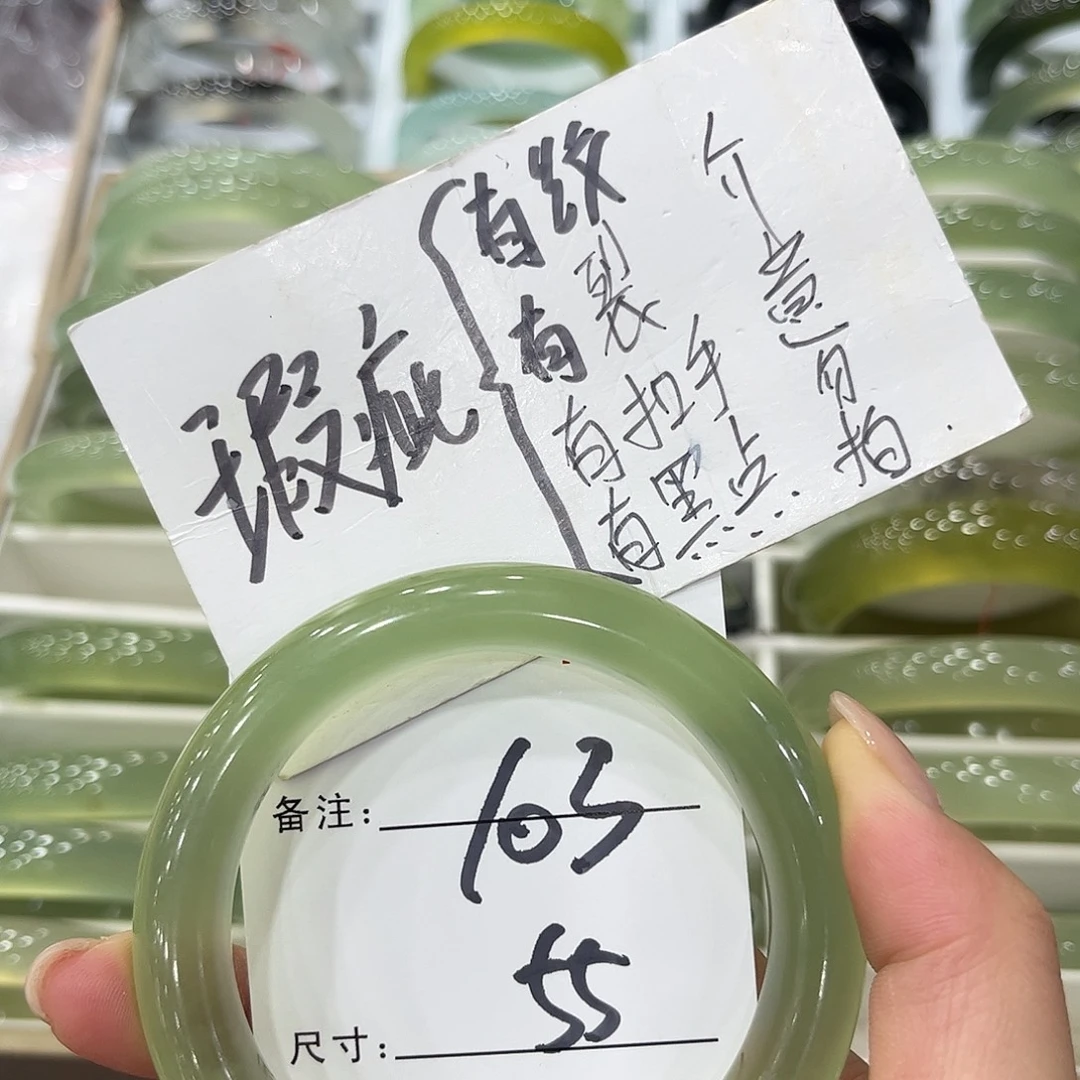 瑕疵
有纹
有裂
有扣手
有黑点.
介意勿拍.
备注: 103
尺寸: 55